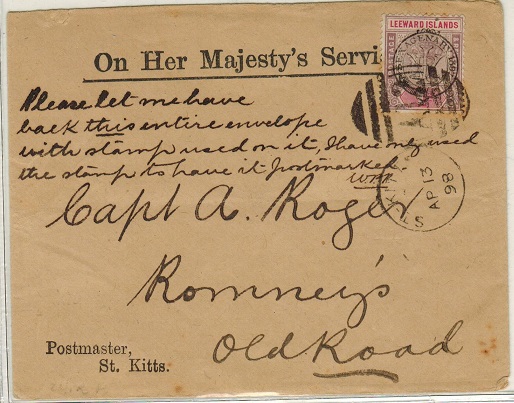 LEEWARD ISLANDS
On Her Majesty's Servi
Please let me have
back this entire envelope
with stamp used on it, I have only used
the stamp to have it postmarked
Capt A. Roger
ST. KITTS
AP 13
98
Romney's
Old Road
Postmaster,
St. Kitts.